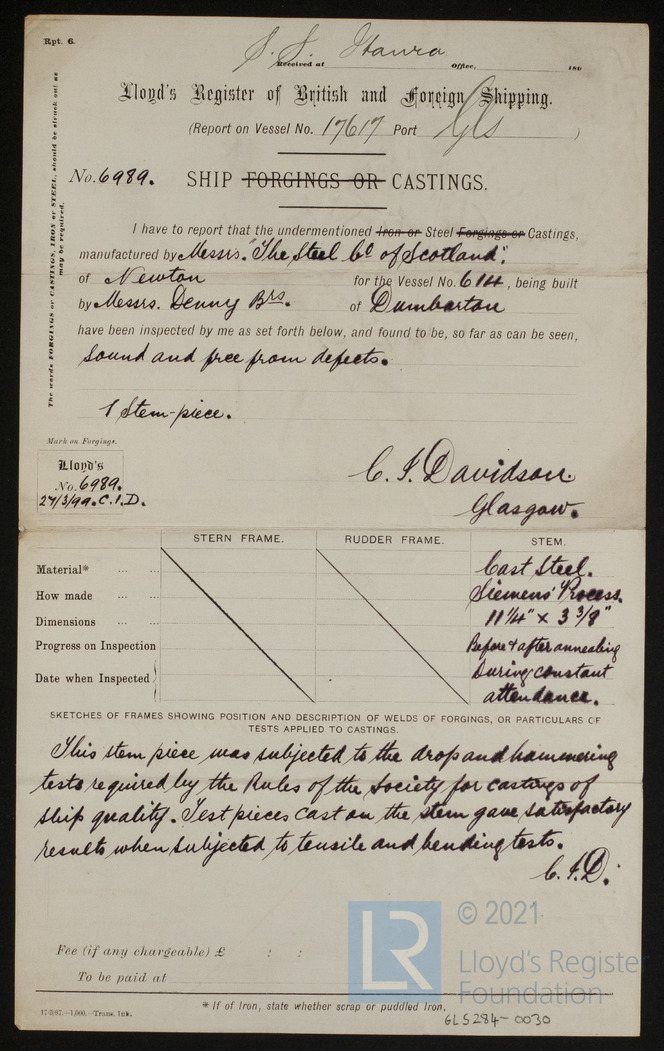 Rpt. 6.
S. S. Itaura
Received at Office, 189
Lloyd's Register of British and Foreign Shipping.
(Report on Vessel No. 17617 Port Gls )
No. 6989. SHIP FORGINGS OR CASTINGS.
The words FORGINGS or CASTINGS, IRON or STEEL, should be struck out as
may be required.
I have to report that the undermentioned Iron or Steel Forgings or Castings,
manufactured by Messrs. "The Steel Co of Scotland".
of Newton for the Vessel No. 614, being built
by Messrs. Denny Brs. of Dumbarton
have been inspected by me as set forth below, and found to be, so far as can be seen,
sound and free from defects.
1 Stem-piece.
Mark on Forgings.
Lloyd's
No. 6989.
27/3/99. C.I.D.
C. I. Davidson.
Glasgow.
STERN FRAME. RUDDER FRAME. STEM.
Material* ... ... Cast Steel.
How made ... ... Siemens' Process.
Dimensions ... ... 11 1/4" x 3 3/8"
Progress on Inspection Before & after annealing
Date when Inspected During constant
attendance.
SKETCHES OF FRAMES SHOWING POSITION AND DESCRIPTION OF WELDS OF FORGINGS, OR PARTICULARS OF
TESTS APPLIED TO CASTINGS.
This stem piece was subjected to the drop and hammering
tests required by the Rules of the Society for castings of
ship quality. Test pieces cast on the stem gave satisfactory
results when subjected to tensile and bending tests.
C.I.D.
Fee (if any chargeable) £ : :
To be paid at
* If of Iron, state whether scrap or puddled Iron.
17/5/97.—1,000.—Trans. Ink.
GLS284-0030
LR
© 2021
Lloyd's Register
Foundation